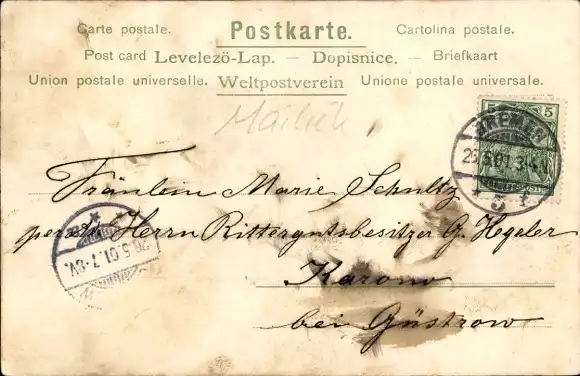 Carte postale. Postkarte. Cartolina postale.
Post card Levelezö-Lap. — Dopisnice. — Briefkaart
Union postale universelle. Weltpostverein Unione postale universale.
5 5
BREMEN
5
Fräulein Marie Schultz
Herrn Rittergutsbesitzer G. Hegeler
26.5.01.7-8V.
Karow
bei Güstrow